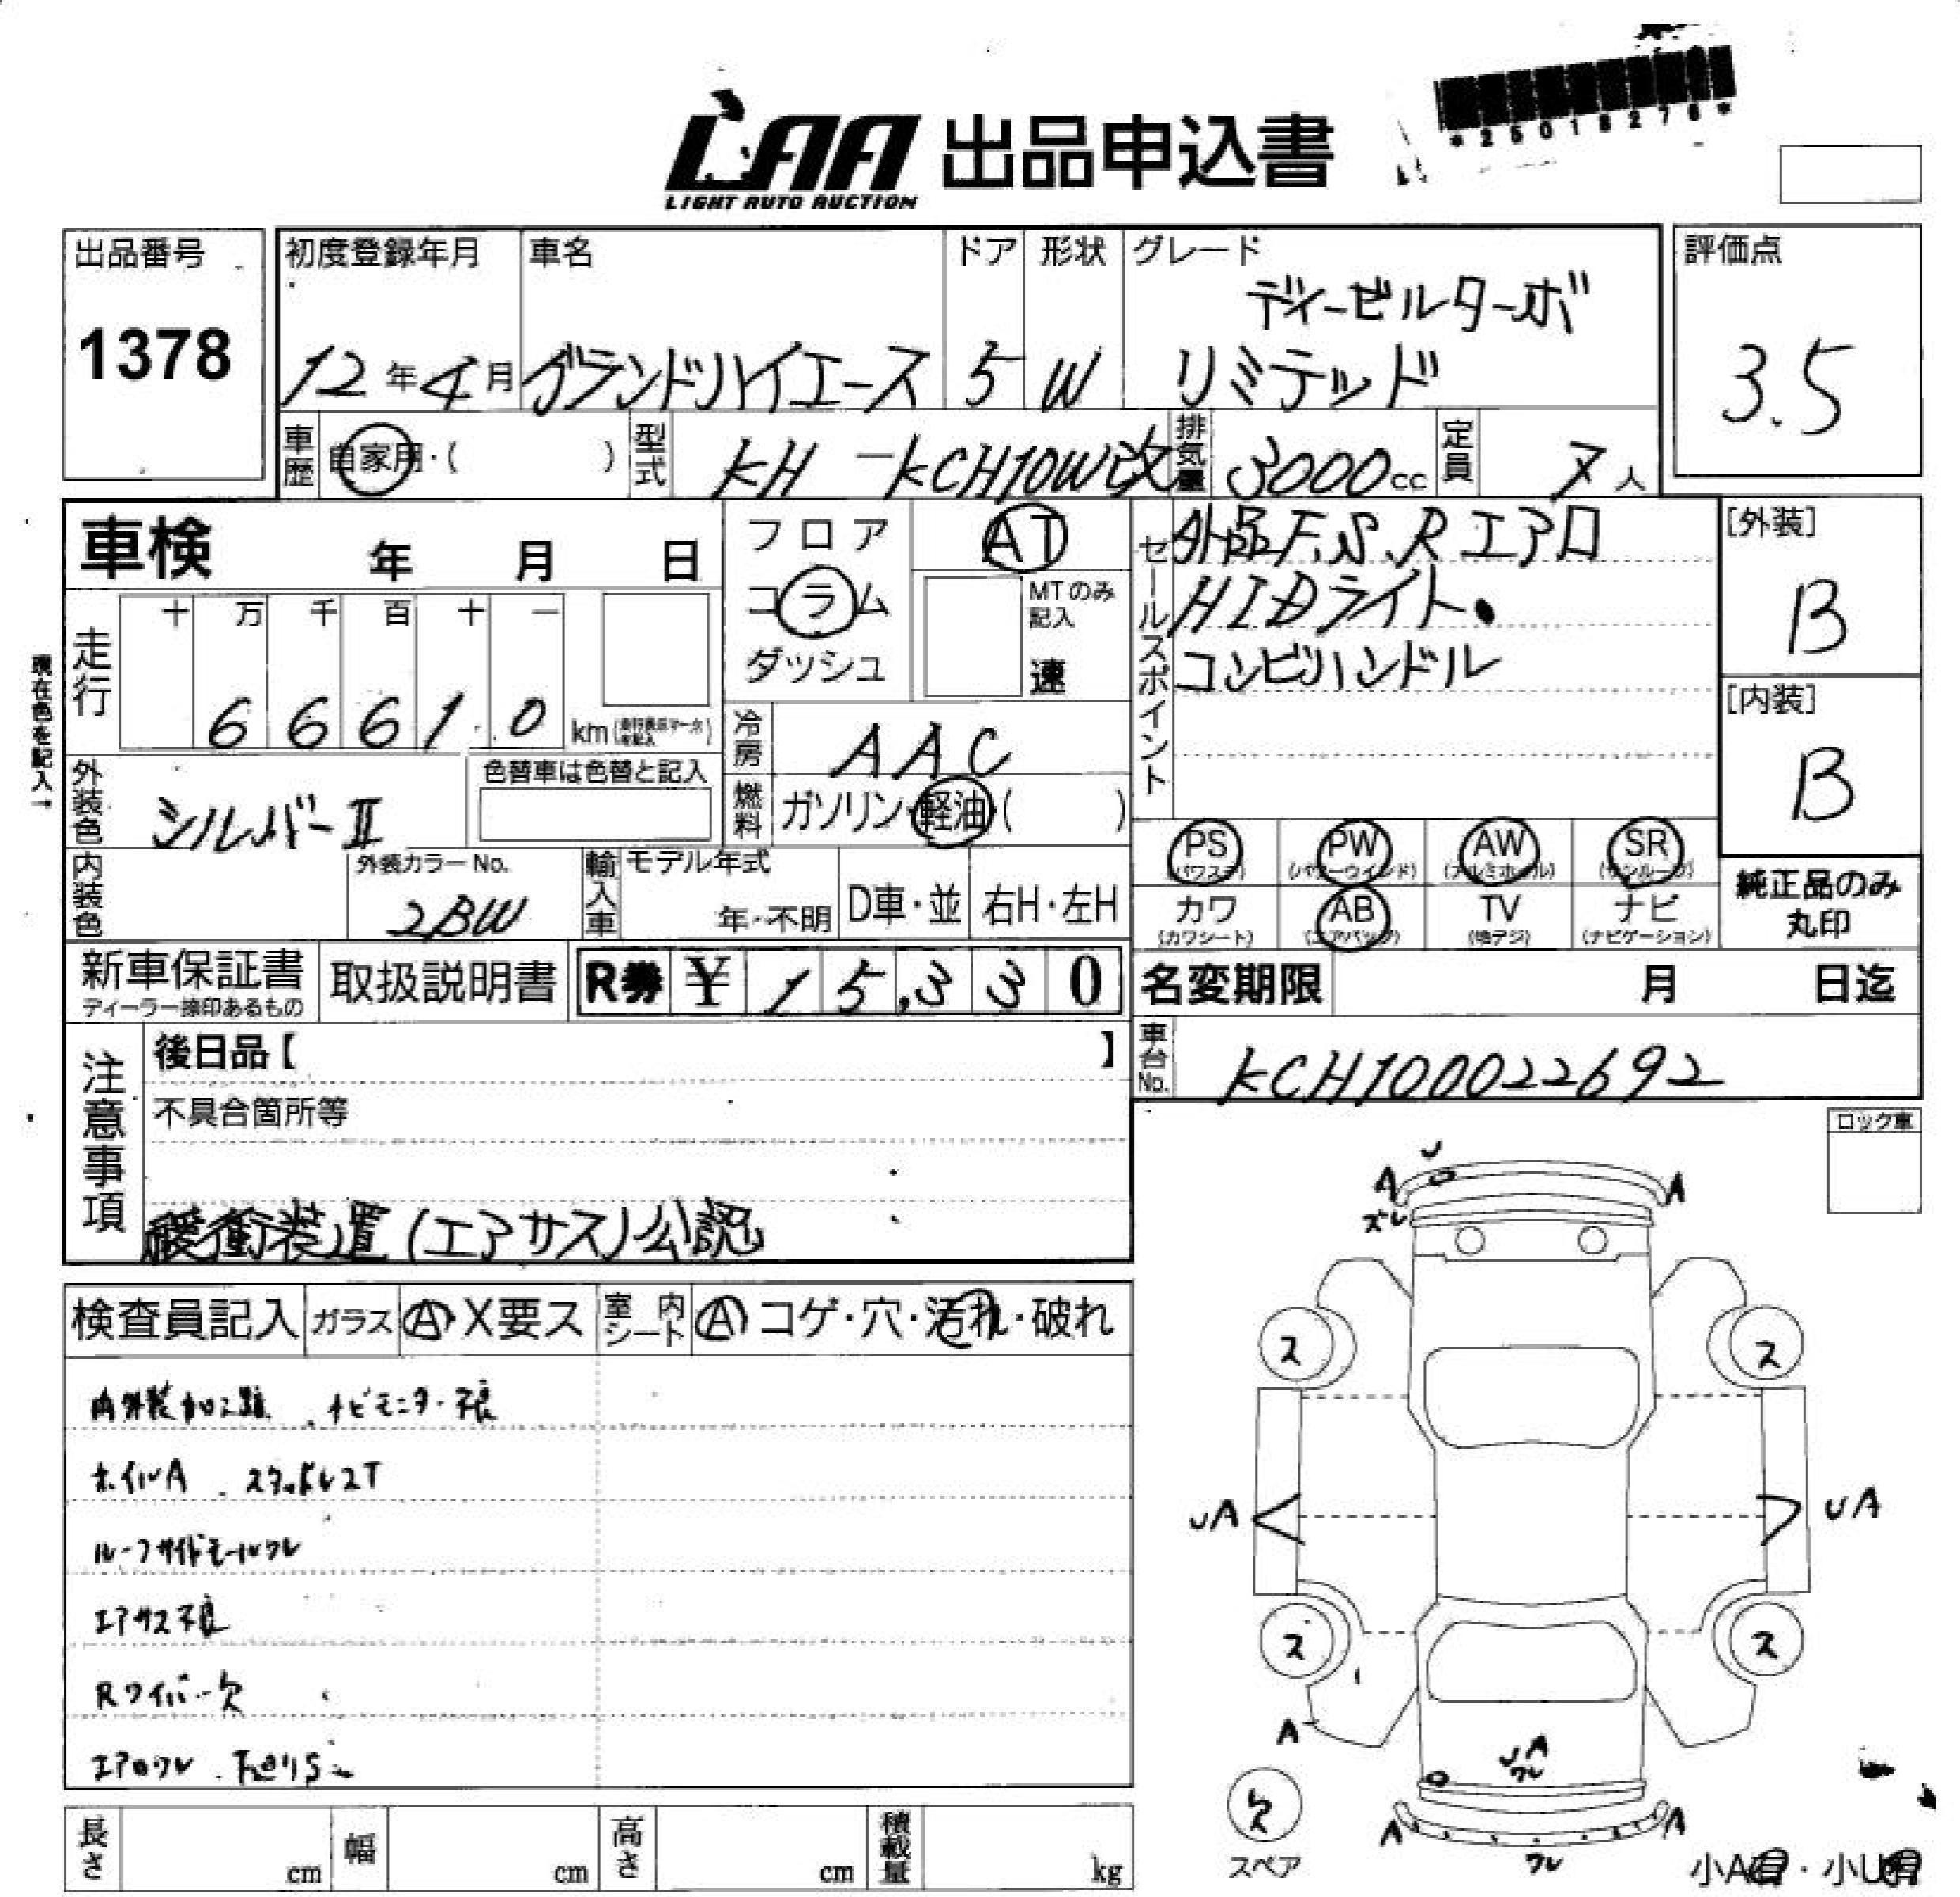 *25018276*
LAA 出品申込書
LIGHT AUTO AUCTION
出品番号
1378
初度登録年月
12年4月
車名
グランドハイエース
ドア
5
形状
W
グレード
ディーゼルターボ
リミテッド
評価点
3.5
車歴 自家用・( )
型式 KH-KCH10W改
排気量 3000cc
定員 7人
車検 年 月 日
フロア
コラム
ダッシュ
AT
MTのみ記入
速
セールスポイント
外品F.S.Rエアロ
HIDライト・
コンビハンドル
[外装]
B
[内装]
B
現在色を記入→
走行
十 万 千 百 十 一
6 6 6 1 0 km
冷房 AAC
燃料 ガソリン・軽油・( )
外装色 シルバーII
色替車は色替と記入
内装色
外装カラーNo.
2BW
輸入車
モデル年式
年・不明
D車・並
右H・左H
PS (パワステ)
PW (パワーウインド)
AW (アルミホイル)
SR (サンルーフ)
カワ (カワシート)
AB (エアバッグ)
TV (地デジ)
ナビ (ナビゲーション)
純正品のみ
丸印
新車保証書
ディーラー捺印あるもの
取扱説明書
R券 ¥ 15,330
名変期限 月 日迄
注意事項
後日品【 】
不具合箇所等
緩衝装置(エアサス)公認
車台No. KCH100022692
ロック車
検査員記入
ガラス A X要ス
室内シート A コゲ・穴・汚れ・破れ
内外装加工跡 . ナビモニター不良
ホイルA . スタッドレスT
ルーフサイドモールワレ
エアサス不良
Rワイパー欠
エアロワレ .
U
A A
ズレ
ス ス
UA UA
ス ス
A
UA
ワレ
A A
ワレ
欠
スペア
小A有・小U有
長さ cm
幅 cm
高さ cm
積載量 kg